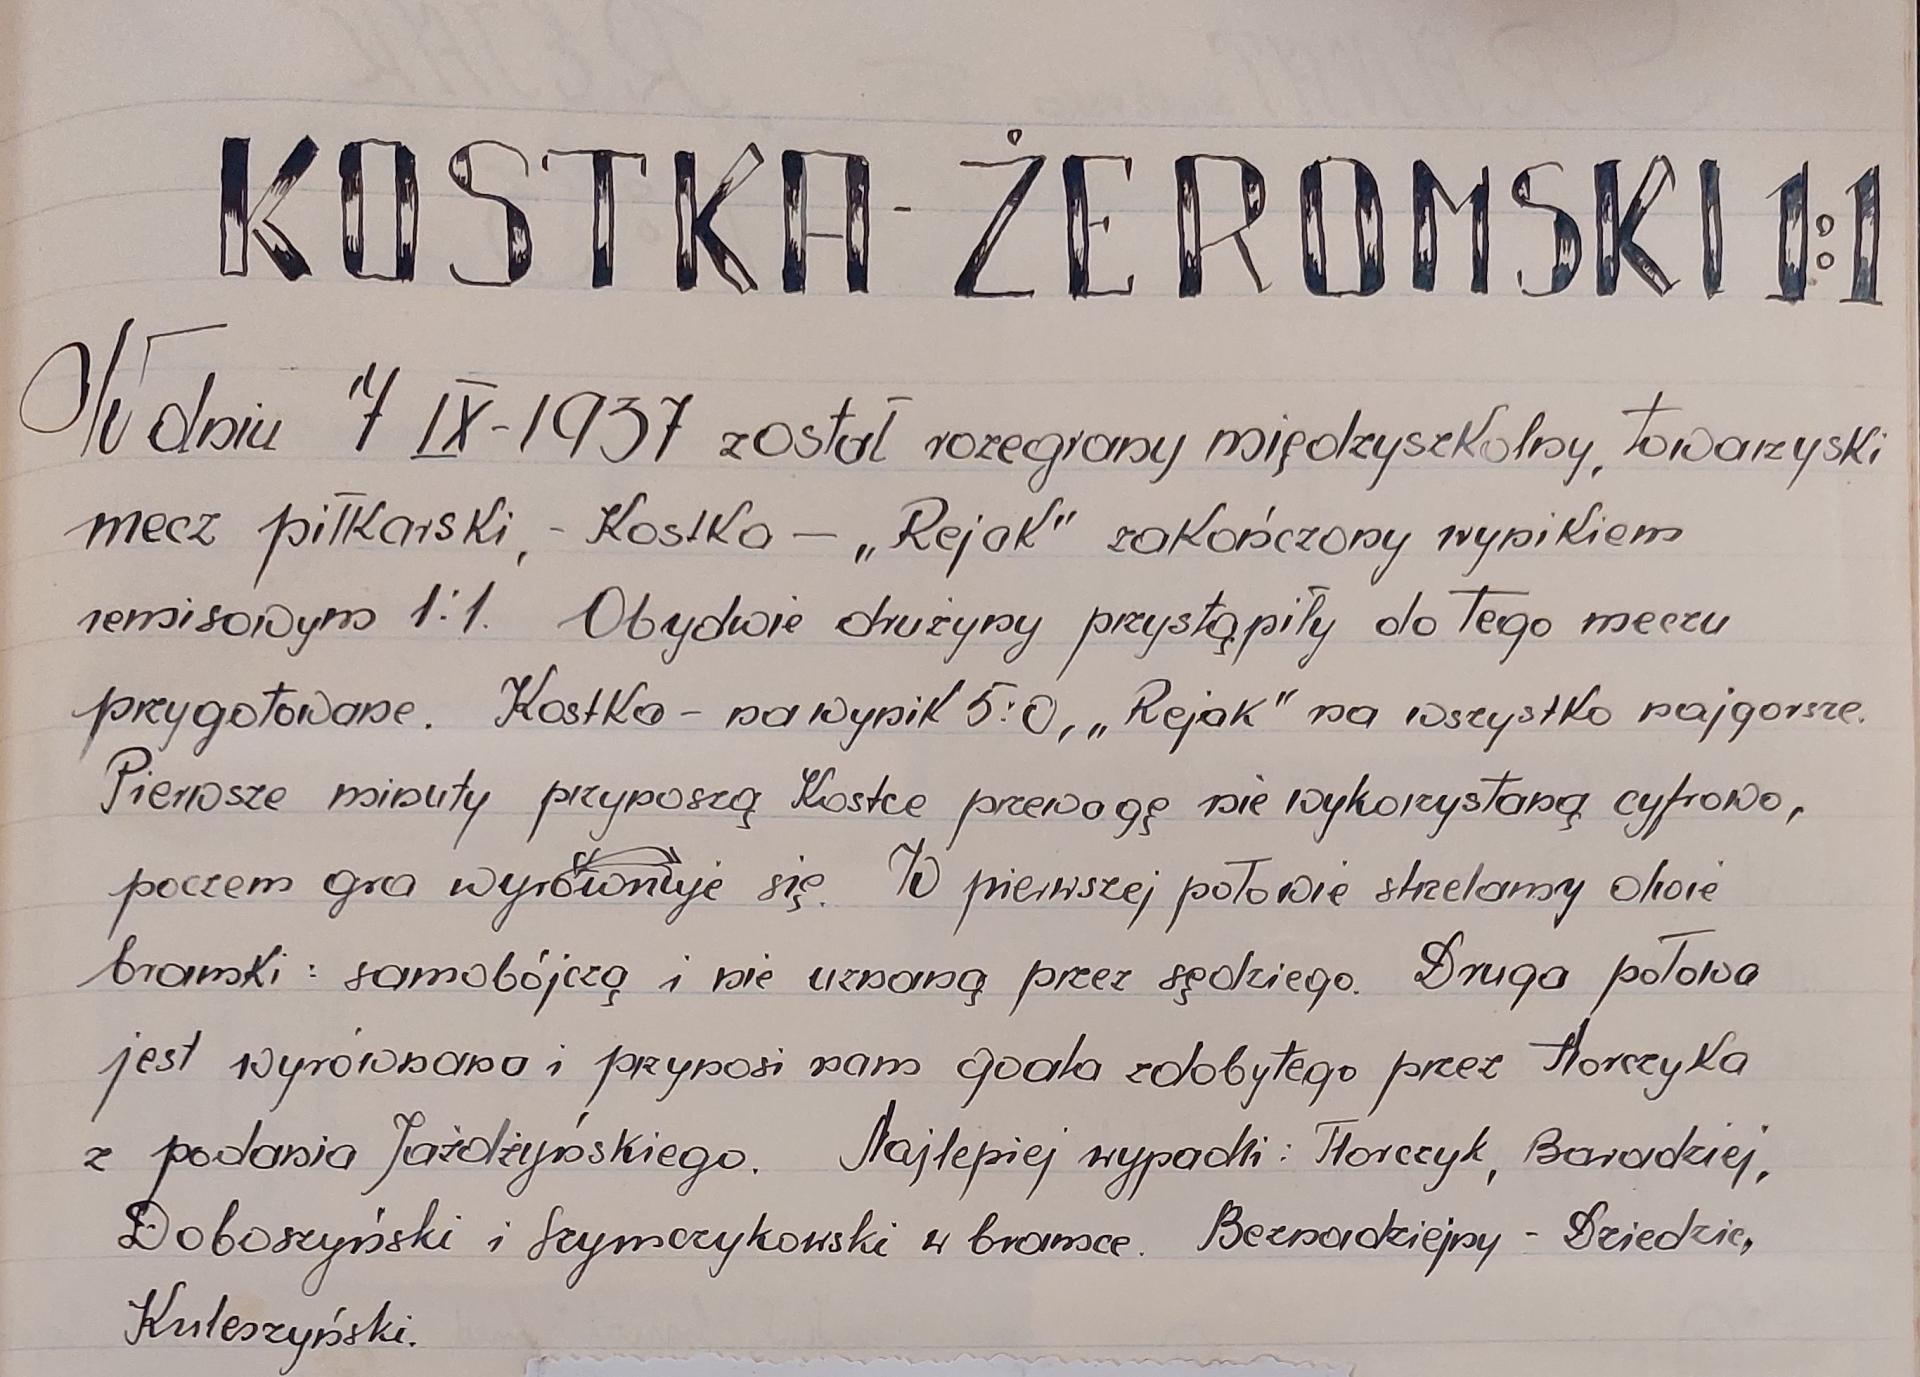 KOSTKA - ŻEROMSKI 1:1
W dniu 7 IX-1937 został rozegrany międzyszkolny, towarzyski
mecz piłkarski, - Kostka — „Rejak" zakończony wynikiem
remisowym 1:1. Obydwie drużyny przystąpiły do tego meczu
przygotowane. Kostka - na wynik 5:0, „Rejak" na wszystko najgorsze.
Pierwsze minuty przynoszą Kostce przewagę nie wykorzystaną cyfrowo,
poczem gra wyrównuje się. W pierwszej połowie strzelamy dwie
bramki: samobójczą i nie uznaną przez sędziego. Druga połowa
jest wyrównana i przynosi nam goala zdobytego przez Horczyka
z podania Jażdżyńskiego. Najlepiej wypadli: Horczyk, Baradziej,
Doboszyński i Szymczykowski w bramce. Beznadziejny - Dziedzic,
Kuleszyński.